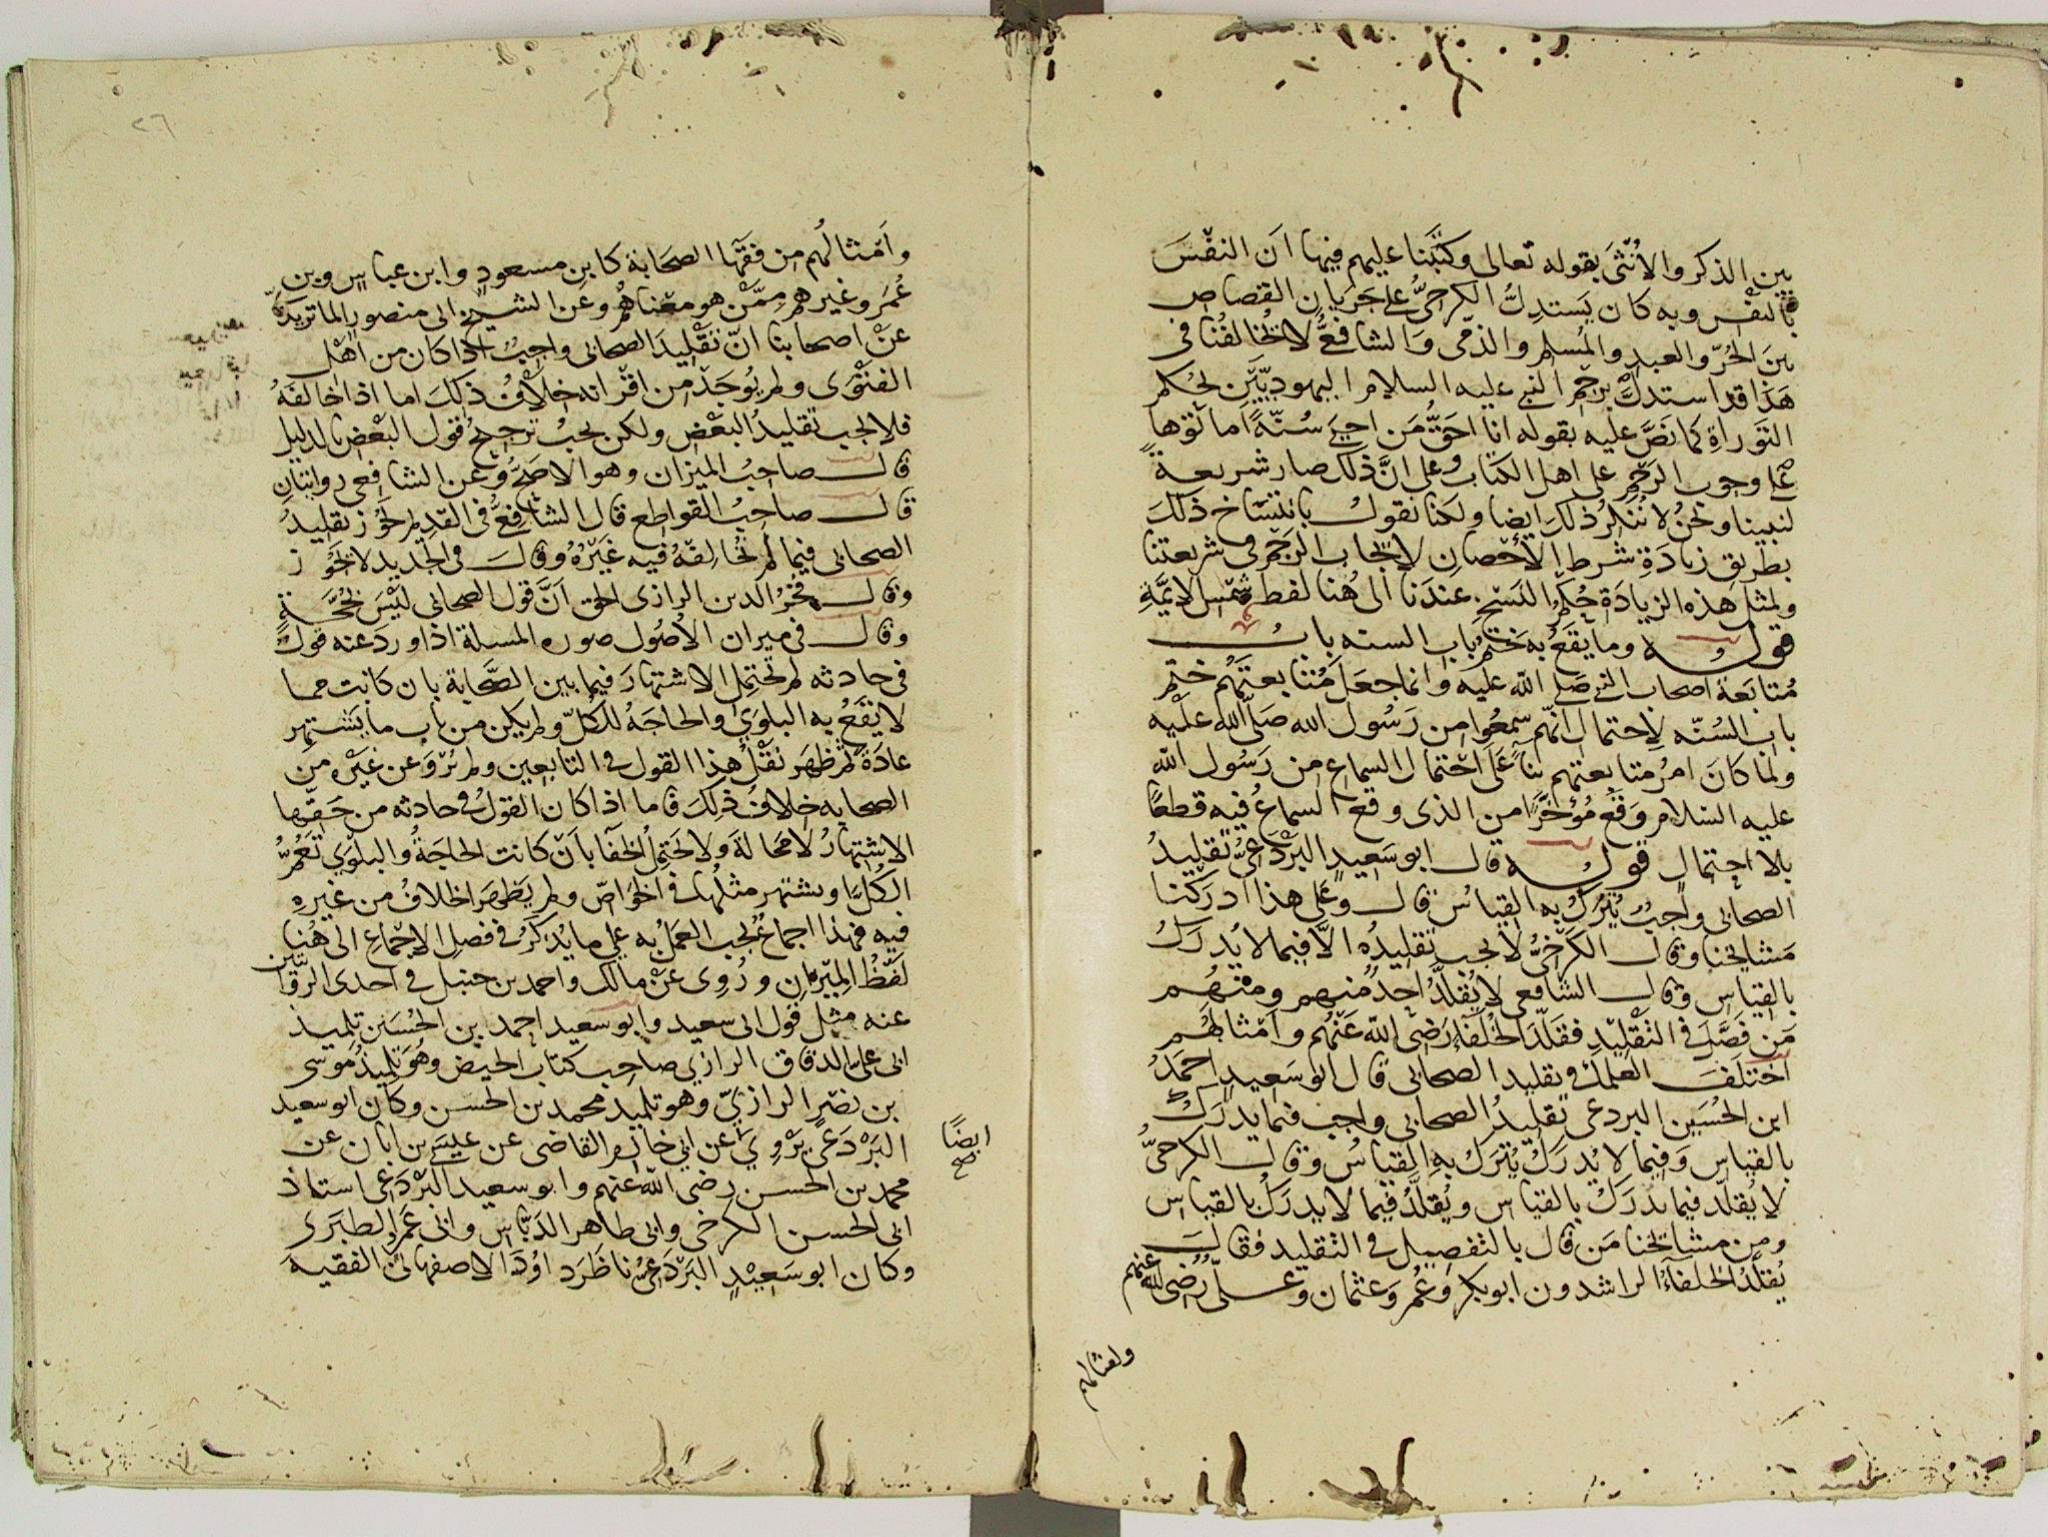 بين الذكر والأنثى بقوله تعالى وكتبنا عليهم فيها ان النفس
بالنفس وبه كان يستدل الكرخي على جريان القصاص
بين الحر والعبد والمسلم والذمي والشافعي لا يخالفنا في
هذا قد استدل برجم النبي عليه السلام اليهوديين بحكم
التوراة كما نص عليه بقوله انا احق من احيى سنة اماتوها
على وجوب الرجم على اهل الكتاب وعلى ان ذلك صار شريعة
لنبينا ونحن لا ننكر ذلك ايضا ولكنا نقول بانتساخ ذلك
بطريق زيادة شرط الاحصان لايجاب الرجم في شريعتنا
ولمثل هذه الزيادة حكم النسخ عندنا الى هنا لفظ شمس الائمة
قوله وما يقع به ختم باب السنه باب
متابعة اصحاب النبي صلى الله عليه وانما جعل متابعتهم ختم
باب السنه لاحتمال انهم سمعوا من رسول الله صلى الله عليه
ولما كان امر متابعتهم بناء على احتمال السماع من رسول الله
عليه السلام وقع مؤخرا من الذي وقع السماع فيه قطعا
بلا احتمال قوله قال ابو سعيد البردعي تقليد
الصحابي واجب يترك به القياس قال وعلى هذا ادركنا
مشايخنا وقال الكرخي لا يجب تقليده الا فيما لا يدرك
بالقياس وقال الشافعي لا يقلد احد منهم ومنهم
من فصل في التقليد فقلد الخلفاء رضي الله عنهم وامثالهم
اختلف العلماء في تقليد الصحابي قال ابو سعيد احمد
ابن الحسين البردعي تقليد الصحابي واجب فيما يدرك
بالقياس وفيما لا يدرك يترك به القياس وقال الكرخي
لا يقلد فيما يدرك بالقياس ويقلد فيما لا يدرك بالقياس
ومن مشايخنا من قال بالتفصيل في التقليد فقال
يقلد الخلفاء الراشدون ابو بكر وعمر وعثمان وعلي رضي الله عنهم
وامثالهم
٢٦
وامثالهم من فقها الصحابة كابن مسعود وابن عباس وبن
عمر وغيرهم ممن هو معناهم وعن الشيخ ابي منصور الماتريدي
عن اصحابنا ان تقليد الصحابي واجب اذا كان من اهل
الفتوى ولم يوجد من اقرانه خلاف ذلك اما اذا خالفه
فلا يجب تقليد البعض ولكن يجب ترجيح قول البعض بالدليل
قال صاحب الميزان وهو الاصح وعن الشافعي روايتان
قال صاحب القواطع قال الشافعي في القديم يجوز تقليد
الصحابي فيما لم يخالفه فيه غيره وقال في الجديد لا يجوز
وقال فخر الدين الرازي الحق ان قول الصحابي ليس بحجة
وقال في ميزان الاصول صوره المسلة اذا ورد عنه قول
في حادثه لم تحتمل الاشتهار فيما بين الصحابة بان كانت مما
لا يقع به البلوى والحاجه للكل ولم يكن من باب ما يشتهر
عادة ثم ظهر نقل هذا القول في التابعين ولم يرو عن غيره من
الصحابه خلاف ذلك فاما اذا كان القول في حادثه من حقها
الاشتهار لا محالة ولا تحتمل الخفا بان كانت الحاجة والبلوى تعم
الكل او يشتهر مثلها في الخواص ولم يظهر الخلاف من غيره
فيه فهذا اجماع يجب العمل به على ما يذكر في فصل الاجماع الى هنا
لفظ الميزان وروى عن مالك واحمد بن حنبل في احدى الروايتين
عنه مثل قول ابي سعيد وابو سعيد احمد بن الحسين تلميذ
ابي علي الدقاق الرازي صاحب كتاب الحيض وهو تلميذ موسى
بن نصر الرازي وهو تلميذ محمد بن الحسن وكان ابو سعيد
البردعي يروي عن ابي خازم القاضي عن عيسى بن ابان عن
ايضا صح
محمد بن الحسن رضي الله عنهم وابو سعيد البردعي استاذ
ابي الحسن الكرخي وابي طاهر الدباس وابي عمرو الطبري
وكان ابو سعيد البردعي ناظر داود الاصفهاني الفقيه